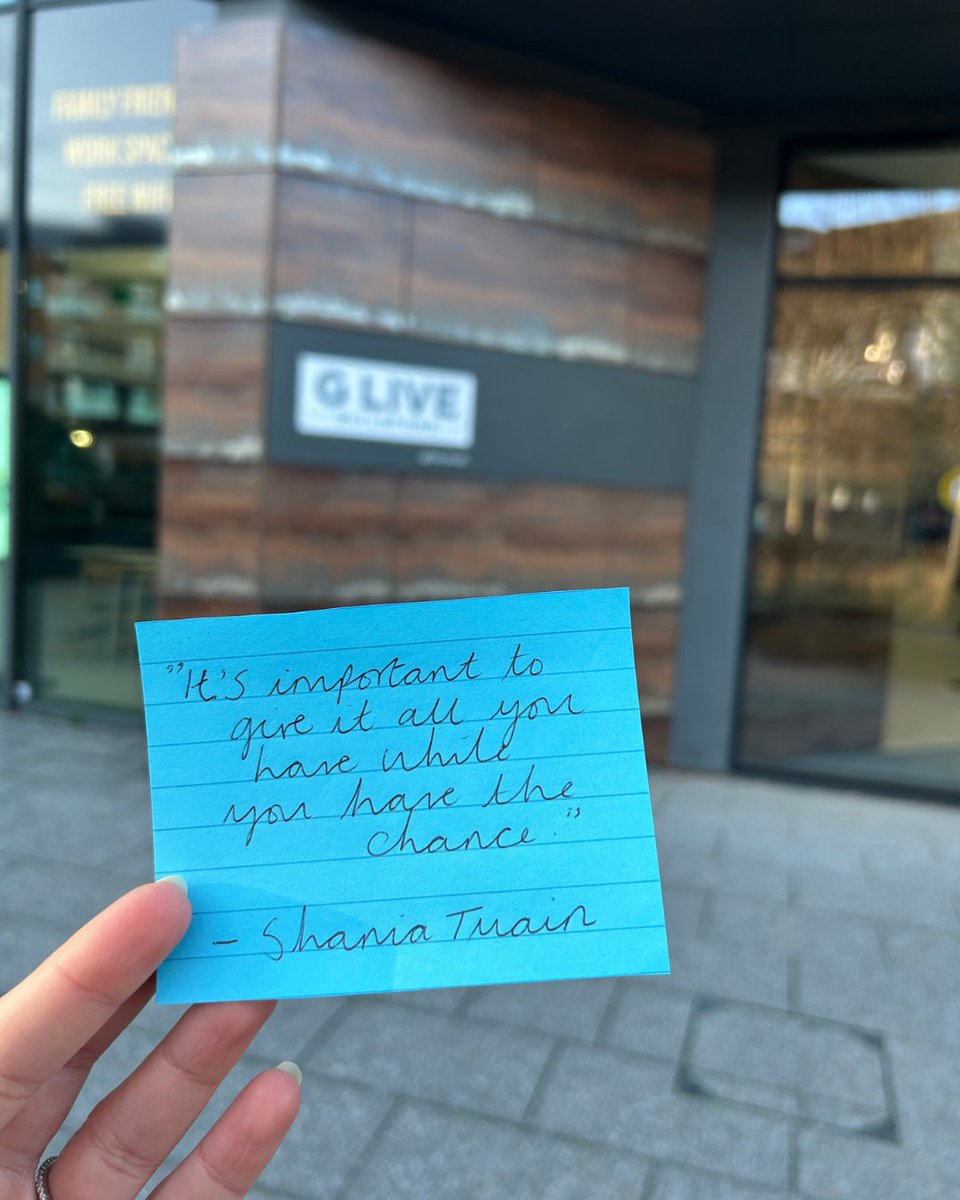 FAMILY FRIEN
WORK SPAC
FREE WIFI
G LIVE
"It's important to
give it all you
have while
you have the
chance."
- Shania Twain